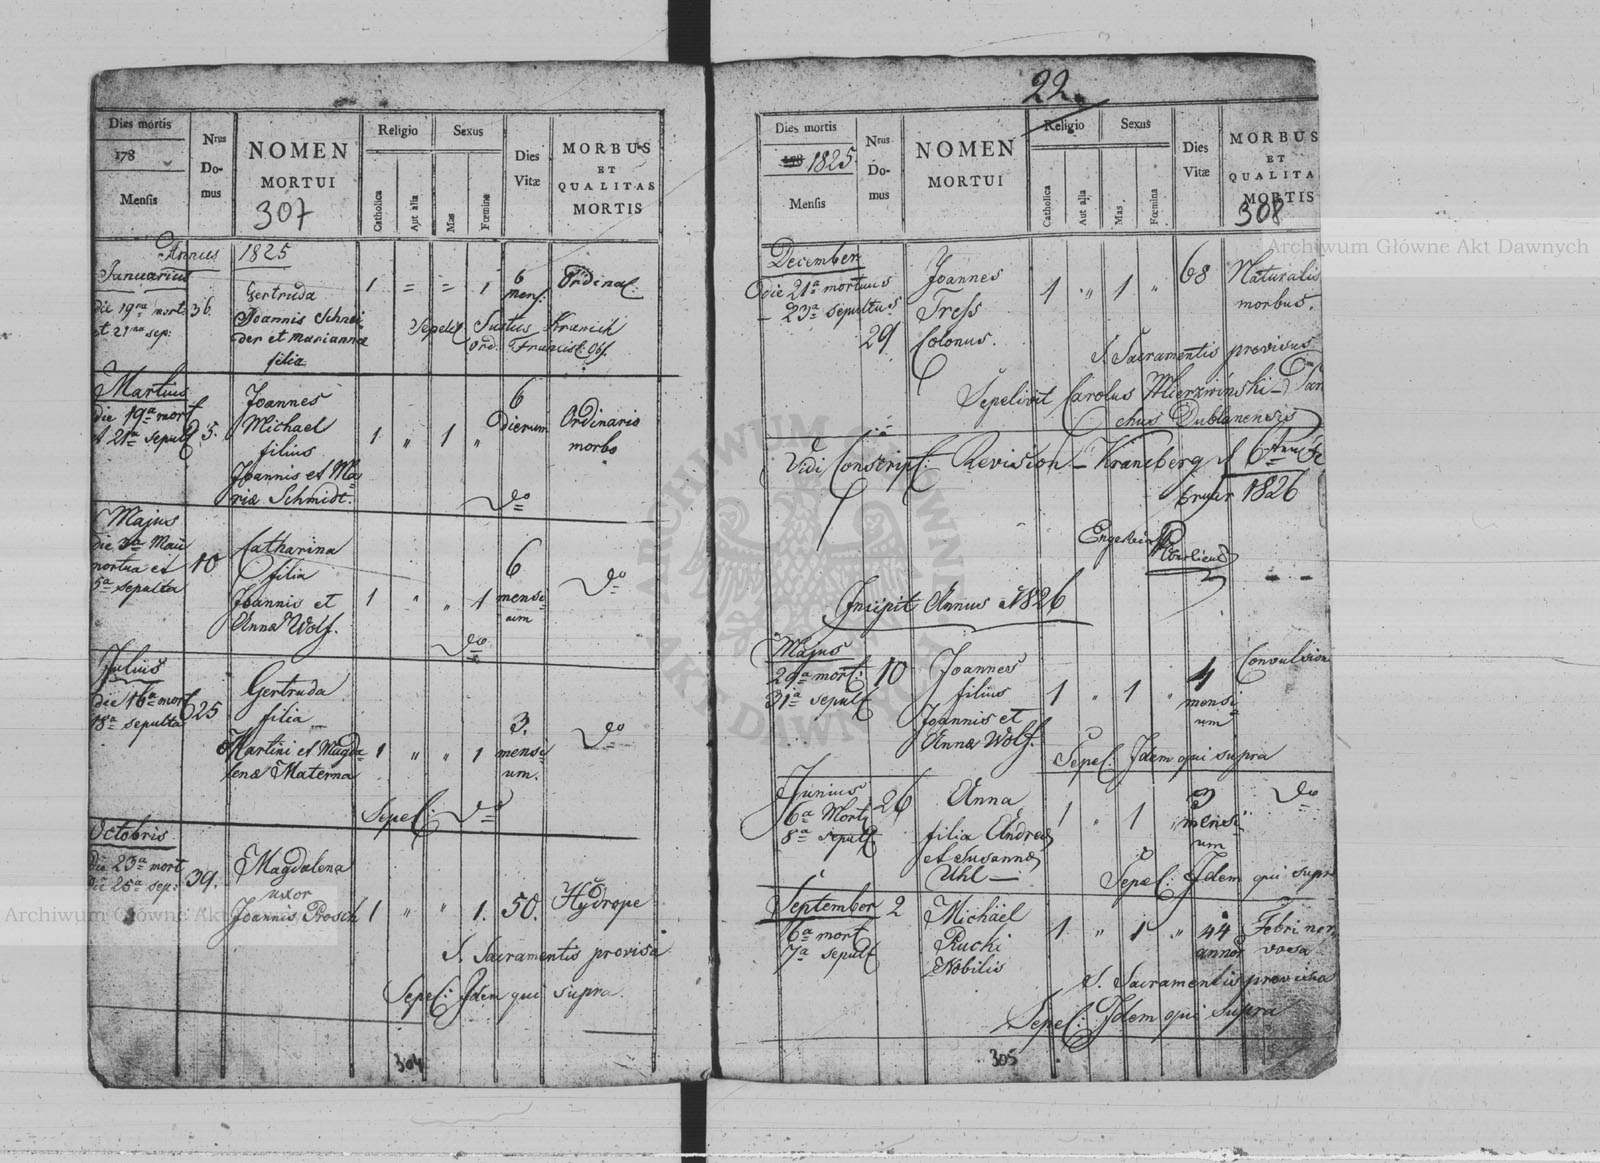 Dies mortis
178
Mensis
Nrus
Do-
mus
NOMEN
MORTUI
307
Religio
Catholica
Aut alia
Sexus
Mas
Fœmina
Dies
Vitæ
MORBUS
ET
QUALITAS
MORTIS
Annus 1825
Januarius
die 19na mort
et 21ma sep:
36.
Gertruda
Joannis Schnei
der et Marianna
filia
1 = = 1
6
mens:
Ordinal:
Sepel: Justus Kranich
Ord. Francisc: Obs.
Martius
die 19a mort
et 21a sepult
25.
Joannes
Michael
filius
Joannis et Ma
riæ Schmidt.
1 " 1 "
6
Dierum
Ordinaris
morbo
do
Majus
die 3a Maii
mortua et
5a sepulta
10
Catharina
filia
Joannis et
Anna Wolf.
1 " " 1
6
mensi
um
do
do
Julius
die 16a mort
18a sepulta
25
Gertruda
filia
Martini et Magda
lenæ Materna
1 " " 1
3.
mensi
um.
do
Sepel: do
Octobris
die 23a mort
die 25a sep:
39.
Magdalena
uxor
Joannis Prosch
1 " " 1.
50.
Hydrope
S. Sacramentis provisa
Sepel: Idem qui supra.
304
22.
Dies mortis
178 1825.
Mensis
Nrus
Do-
mus
NOMEN
MORTUI
Religio
Catholica
Aut alia
Sexus
Mas
Fœmina
Dies
Vitæ
MORBUS
ET
QUALITA
MORTIS
308
December
die 21a mortuus
23a sepultus
29
Joannes
Tress
Colonus.
1 " 1 "
68
Naturalis
morbus.
S. Sacramentis provisus
Sepelivit Carolus Mierzwinski Par
ochus Dublanensis
Vidi Conscript: Revision Kranzberg
1826
Incipit Annus 1826
Majus
29a mort:
31a sepult
10
Joannes
filius
Joannis et
Annæ Wolf.
1 " 1 "
4
mensi
um
Convulsion
Sepel: Idem qui supra
Junius
6a Mort
8a sepult
26
Anna
filia Andreæ
et Susannæ
Uhl
1 " 1
3
mensi
um
do
Sepel: Idem qui supra
September
6a mort
7a sepult
2
Michäel
Ruchi
Nobilis
1 " 1 "
44
annor
Febri ner
vosa
S. Sacramentis provisus
Sepel: Idem qui supra
305
Archiwum Główne Akt Dawnych
Archiwum Główne Akt Dawnych
ARCHIWUM GŁÓWNE AKT DAWNYCH